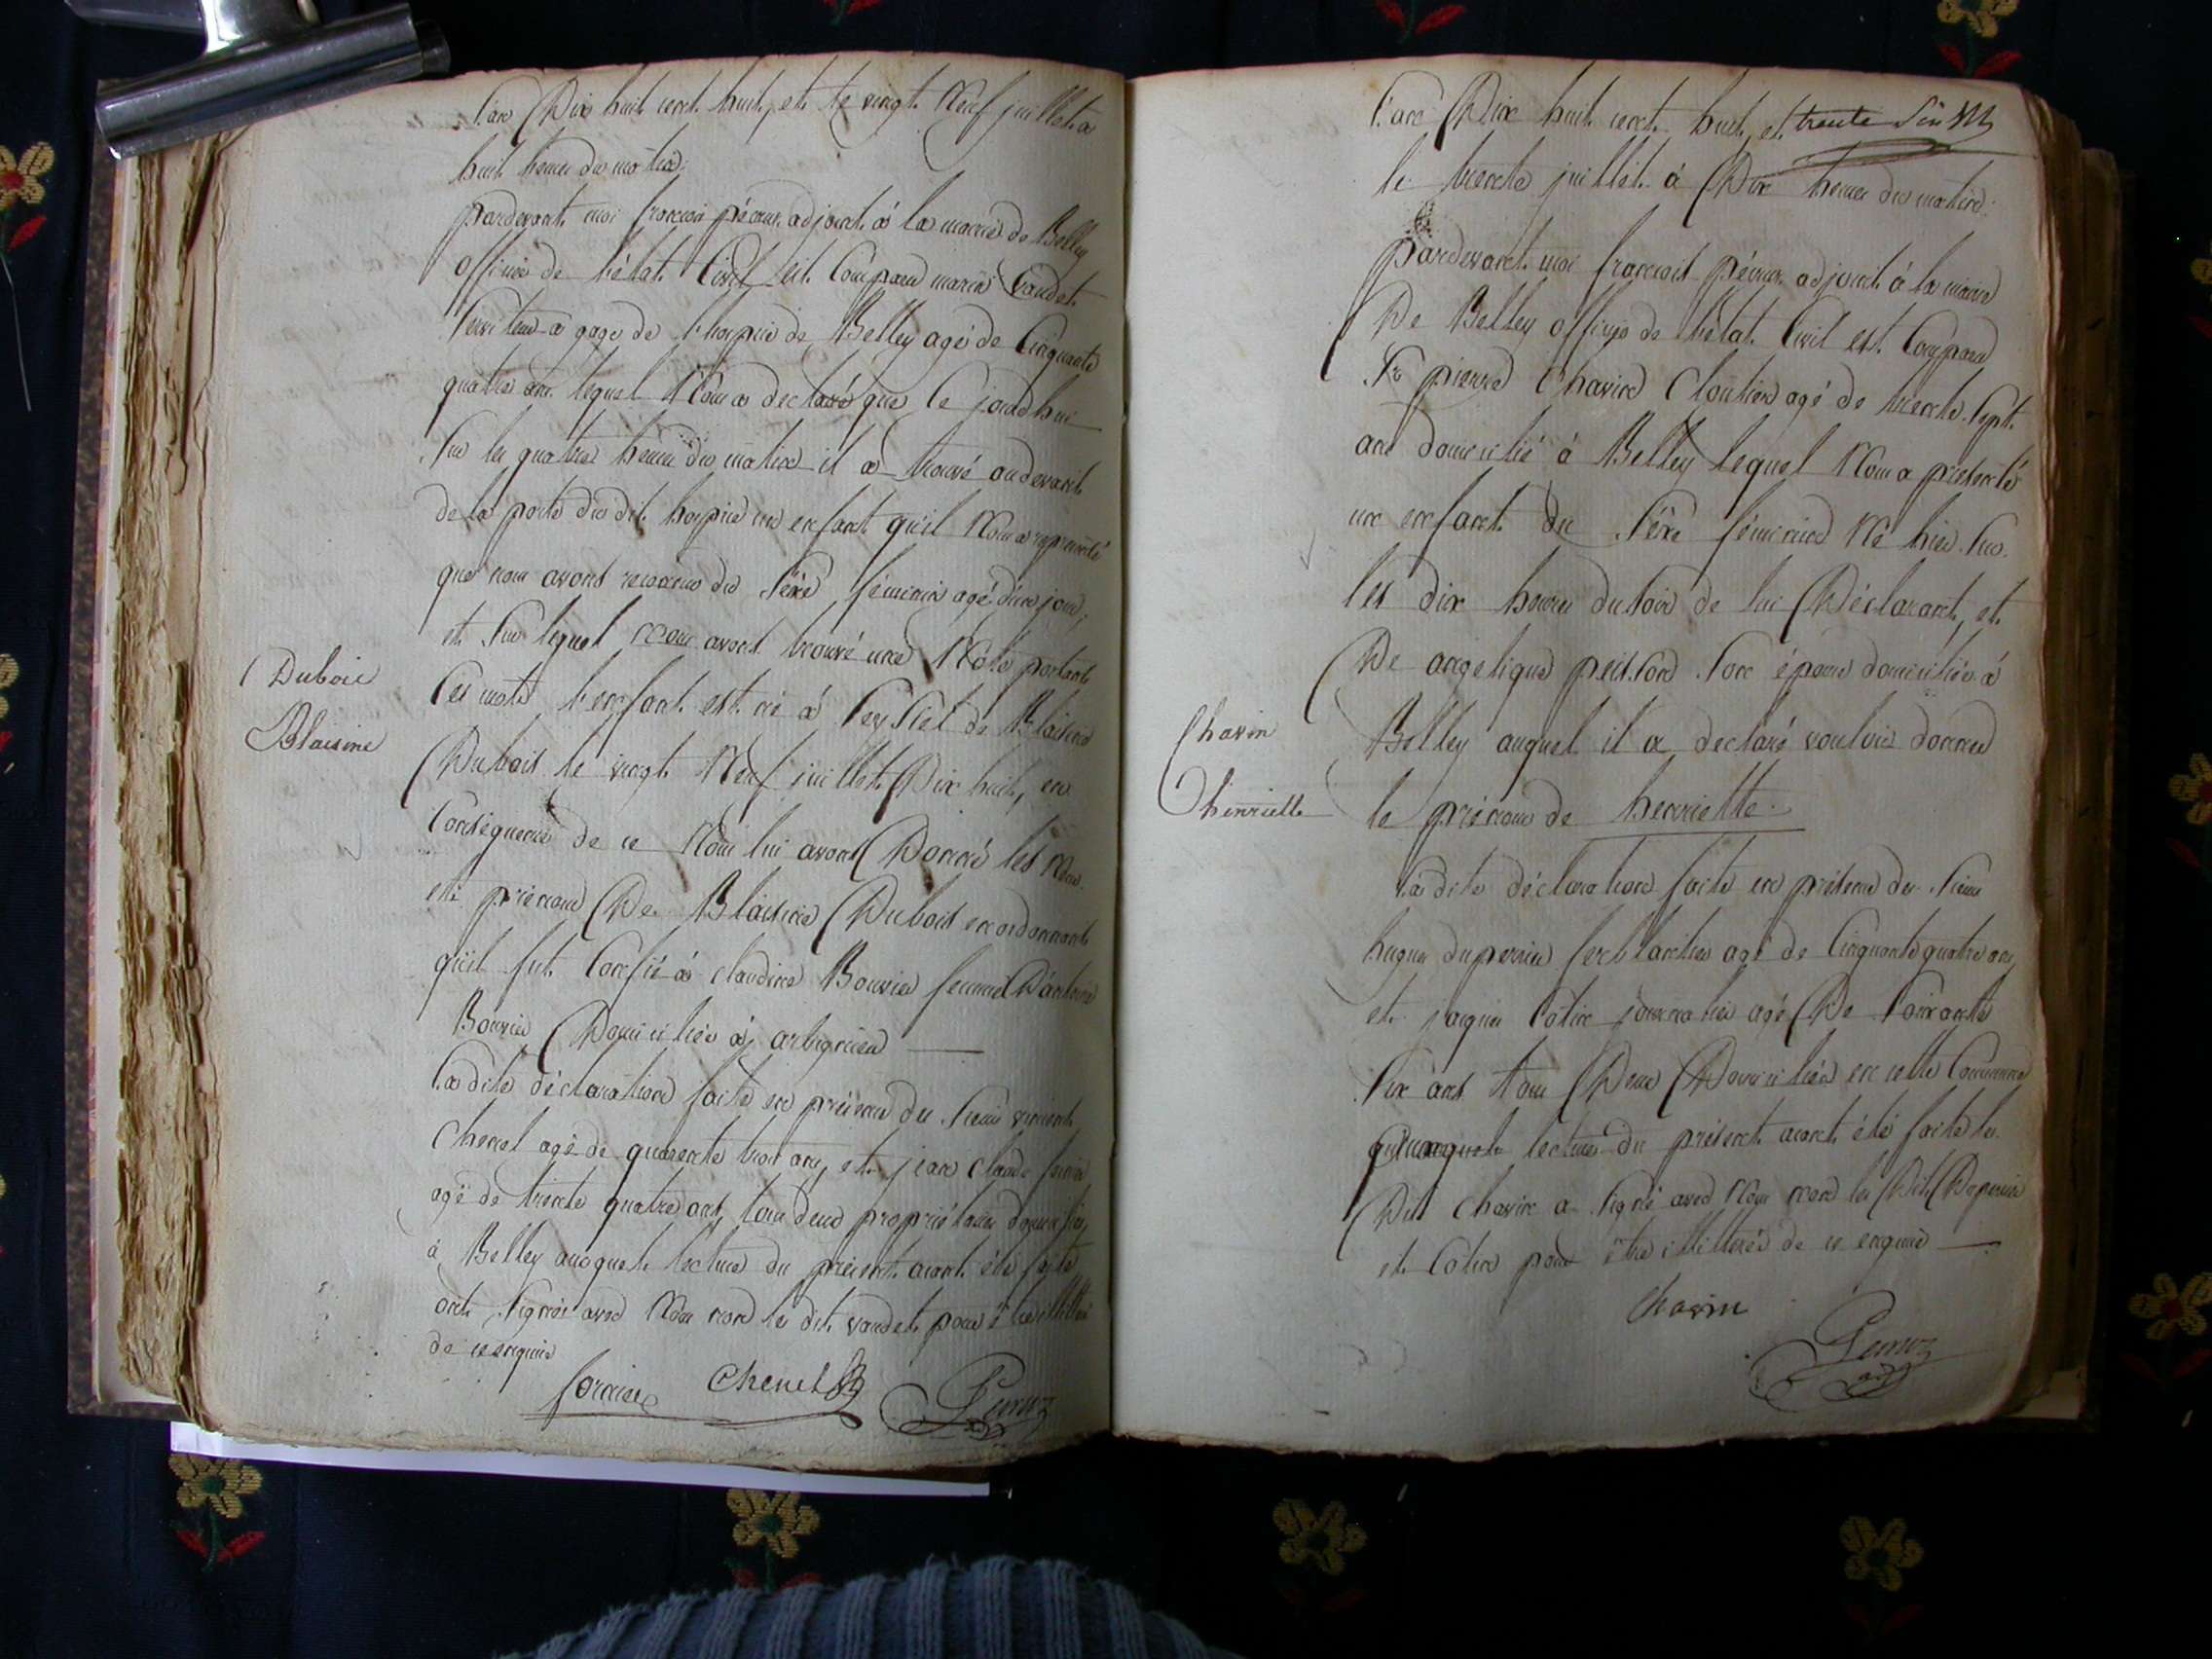 L'an Dix huit cent huit, et le vingt Neuf juillet a
huit heures du matin.
pardevant moi françois péroux adjoint à la mairie de Belley
officier de l'état Civil est Comparu marin Vaudet
Serviteur à gage de l'hospice de Belley agé de Cinquante
quatre ans lequel Nous a declaré que ce jourdhui
Sur les quatre heures du matin il a trouvé au devant
de la porte du dit hospice un enfant qu'il Nous a représenté
que nous avons reconnu du Séxe féminin agé d'un jour,
et Sur lequel nous avons trouvé une Note portant
Dubois
Blaisine
Ces mots l'enfant est né à Seyssel de Blaisine
Dubois le vingt Neuf juillet Dix huit, en
Conséquence de ce Nous lui avons Donné les Nom
et prénom De Blaisine Dubois en ordonnant
qu'il fut Confié à claudine Bouvier femme D'antoine
Bouvier Domiciliée à arbignieu
La dite déclaration faite en présence du Sieur vincent
Chenel agé de quarente trois ans, et jean claude
agé de trente quatre ans, tous deux propriétaires domiciliés
à Belley auxquels lecture du présent aiant été faite
ont Signés avec Nous non le dit vaudet pour être illitéré
de ce enquis
Chenel
L'an Dix huit cent huit, et trente Six
le trente juillet à Dix heures du matin.
pardevant moi françois péroux adjoint à la mairie
De Belley officier de l'état Civil est Comparu
Sr pierre Chavin Cloutier agé de trente Sept
ans domicilié à Belley lequel Nous a présenté
un enfant du Séxe féminin Né hier Sur
les dix heures du Soir de lui Déclarant, et
De angelique Son épouse domiciliée à
Chavin
henriette
Belley auquel il a declaré vouloir donner
le prénom de henriette.
La dite déclaration faite en présence du Sieur
hugues duperrier ferblantier agé de Cinquante quatre ans,
et jaques Cotin journalier agé De Soixante
Six ans tous Deux Domiciliés en cette Commune
auxquels lecture du présent aiant été faite le
Dit Chavin a Signé avec Nous non les Dits Duperrier
et Cotin pour être illitérés de ce enquis
Chavin